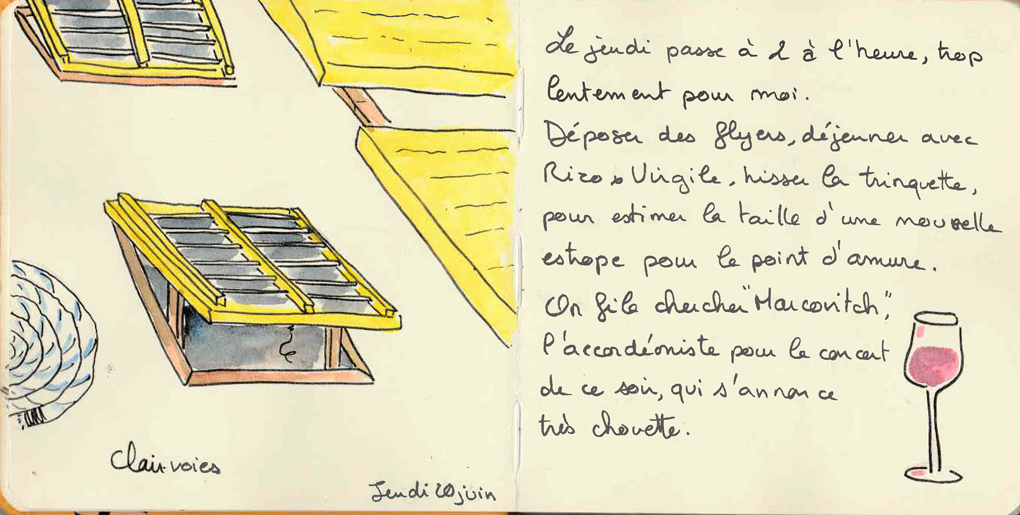 Clairvoies
Jeudi 20 juin
Le jeudi passe à 2 à l'heure, trop
lentement pour moi.
Déposer des flyers, déjeuner avec
Rizo & Virgile, hisser la trinquette,
pour estimer la taille d'une nouvelle
estrope pour le point d'amure.
On file chercher "Marcovitch",
l'accordéoniste pour le concert
de ce soir, qui s'annonce
très chouette.